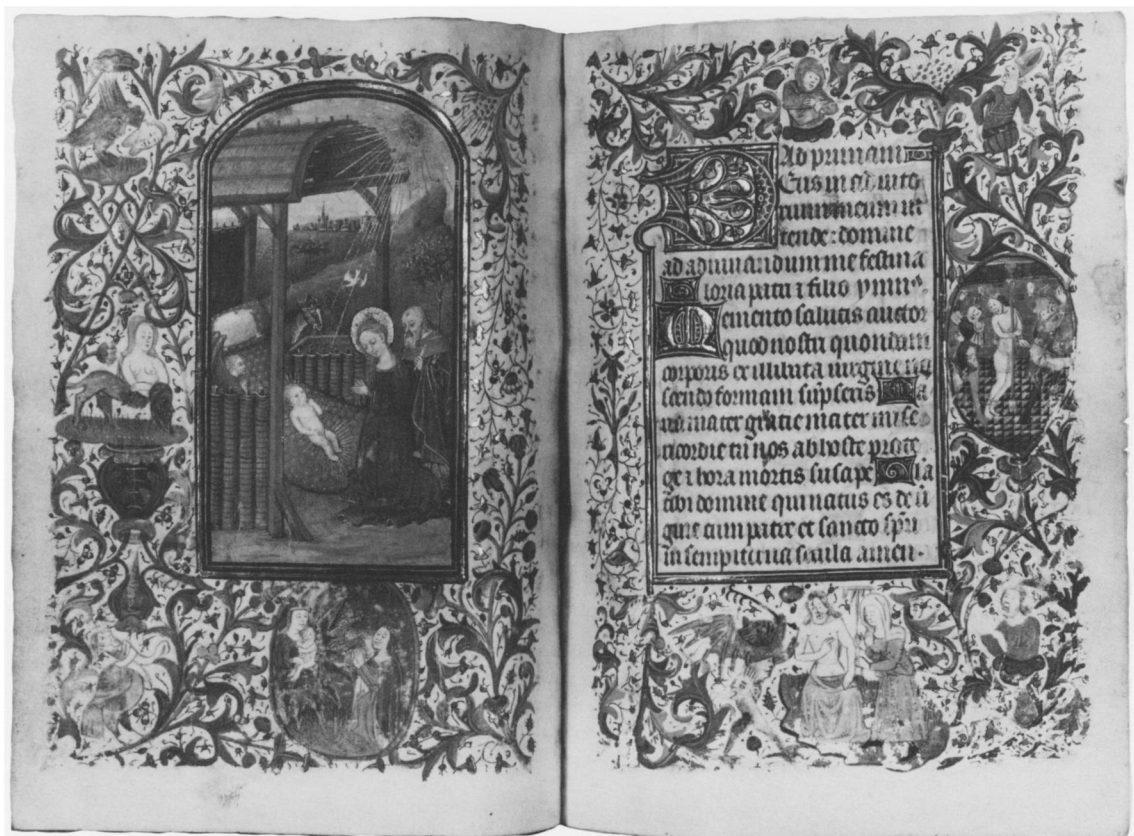 Ad primam
Deus in adiuto
rium meum in
tende: domine
ad adiuuandum me festina
Gloria patri ⁊ filio ymnus
Memento salutis auctor
quod nostri quondam
corporis ex illibata uirgine na
scendo formam sūpseris Ma
ria mater gratie mater mise
ricordie tu nos ab hoste prote
ge ⁊ hora mortis suscipe Glo
tibi domine qui natus es de uir
gine cum patre et sancto spiri
in sempiterna secula amen.